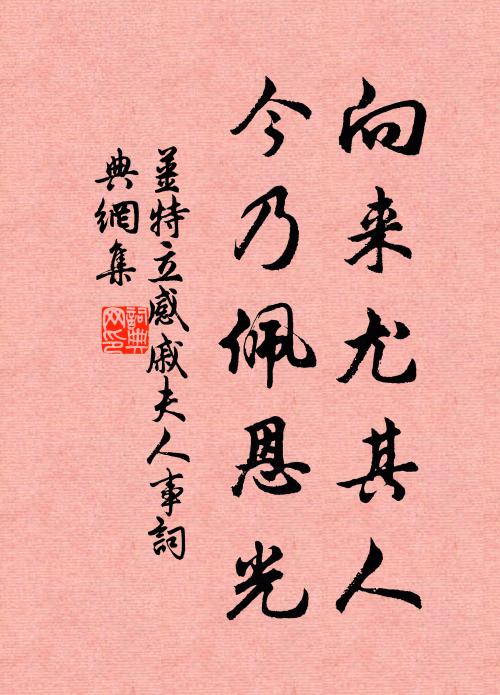 向来尤其人
今乃佩恩光
姜特立感戚夫人事詞
典網集
詞典
网印